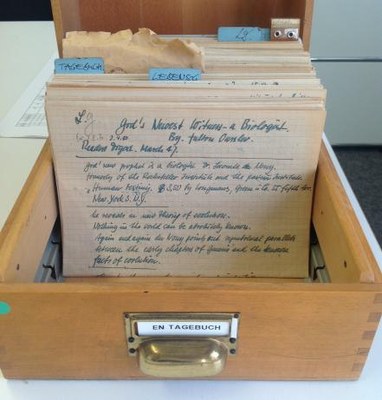 Lg
TAGEBUCH
LEBENSL
God's Newest Witness - a Biologist
By Fulton Oursler.
Readers Digest. March 47.
God's new prophet is a Biologist Dr. Lecomte du Noüy,
formerly of the Rockefeller Institute and the Pasteur Institute.
Human Destiny, $ 3,50 by Longmans, Green & Co. 55 Fifth Av.
New York 3. N.Y.
He reveals a new theory of evolution.
Nothing in the world can be absolutely known.
Again and again Du Noüy points out symbolical parallels
between the early chapters of Genesis and the known
facts of evolution.
EN TAGEBUCH